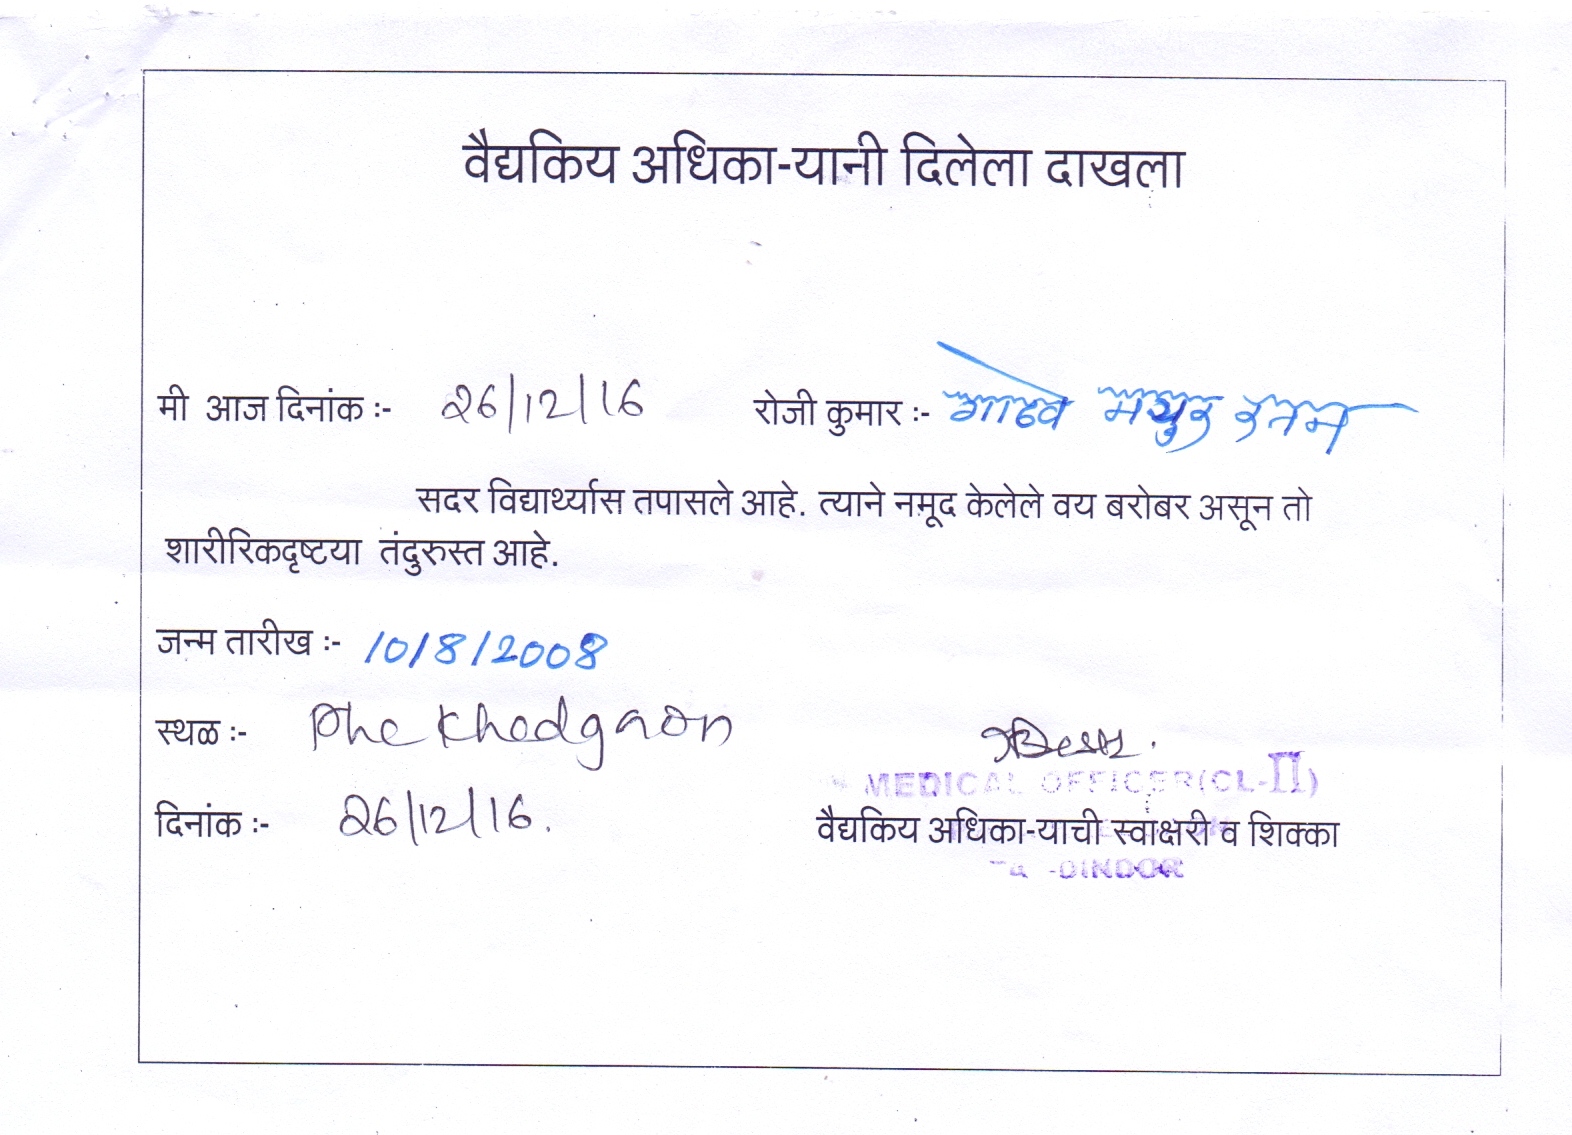 वैद्यकिय अधिका-यानी दिलेला दाखला
मी आज दिनांक :- 26/12/16 रोजी कुमार :- गाढवे मयुर रतन
सदर विद्यार्थ्यास तपासले आहे. त्याने नमूद केलेले वय बरोबर असून तो
शारीरिकदृष्टया तंदुरुस्त आहे.
जन्म तारीख :- 10/8/2008
स्थळ :- Phc Khedgaon
दिनांक :- 26/12/16.
MEDICAL OFFICER (CL-II)
वैद्यकिय अधिका-याची स्वाक्षरी व शिक्का
-DINDOR